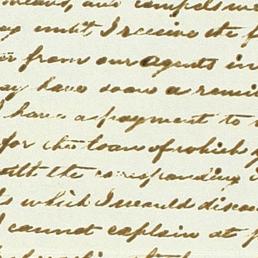 means, and compels me
until I receive the f
from our agents in
may have soon a remit
have a payment to
for the loan of which
with the corresponding i
which I would disco
I cannot explain at f